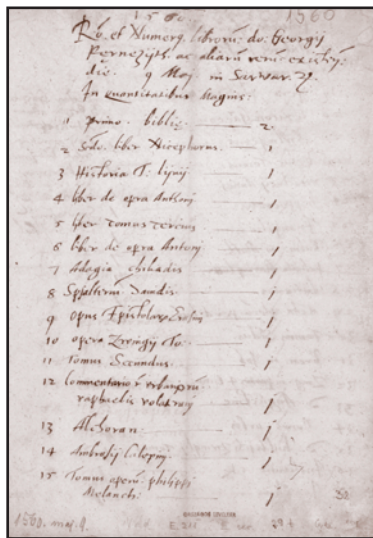 1560. 1560
Rō. et Numerꝗ librorū: do: Georgij
Pernezijth. ac aliarū rerū existen:
die. 9 Maj. in Sarwar. ⁊.
In quantitatibus Magnis:
1 primo. biblie. 2
2 Sedo. liber Nicephorus. 1
3 Historia T: Lijuij 1
4 liber de opra Anthonj 1
5 liber tomus tercius 1
6 liber de opra Antonj 1
7 Adagia chiliadis 1
8 Spsalteriū Dauidis 1
9 opus Epistolarꝝ Erasmj 1
10 opera Zwinglij 1
11 Tomus Secundus. 1
12 Commentarior vrbanorū
raphaelis volateranj 1
13 Alchoran: 1
14 Ambrosij Calepinj 1
15 Tomus operū: philippi
Melanch: 1
1560. maj. 9.